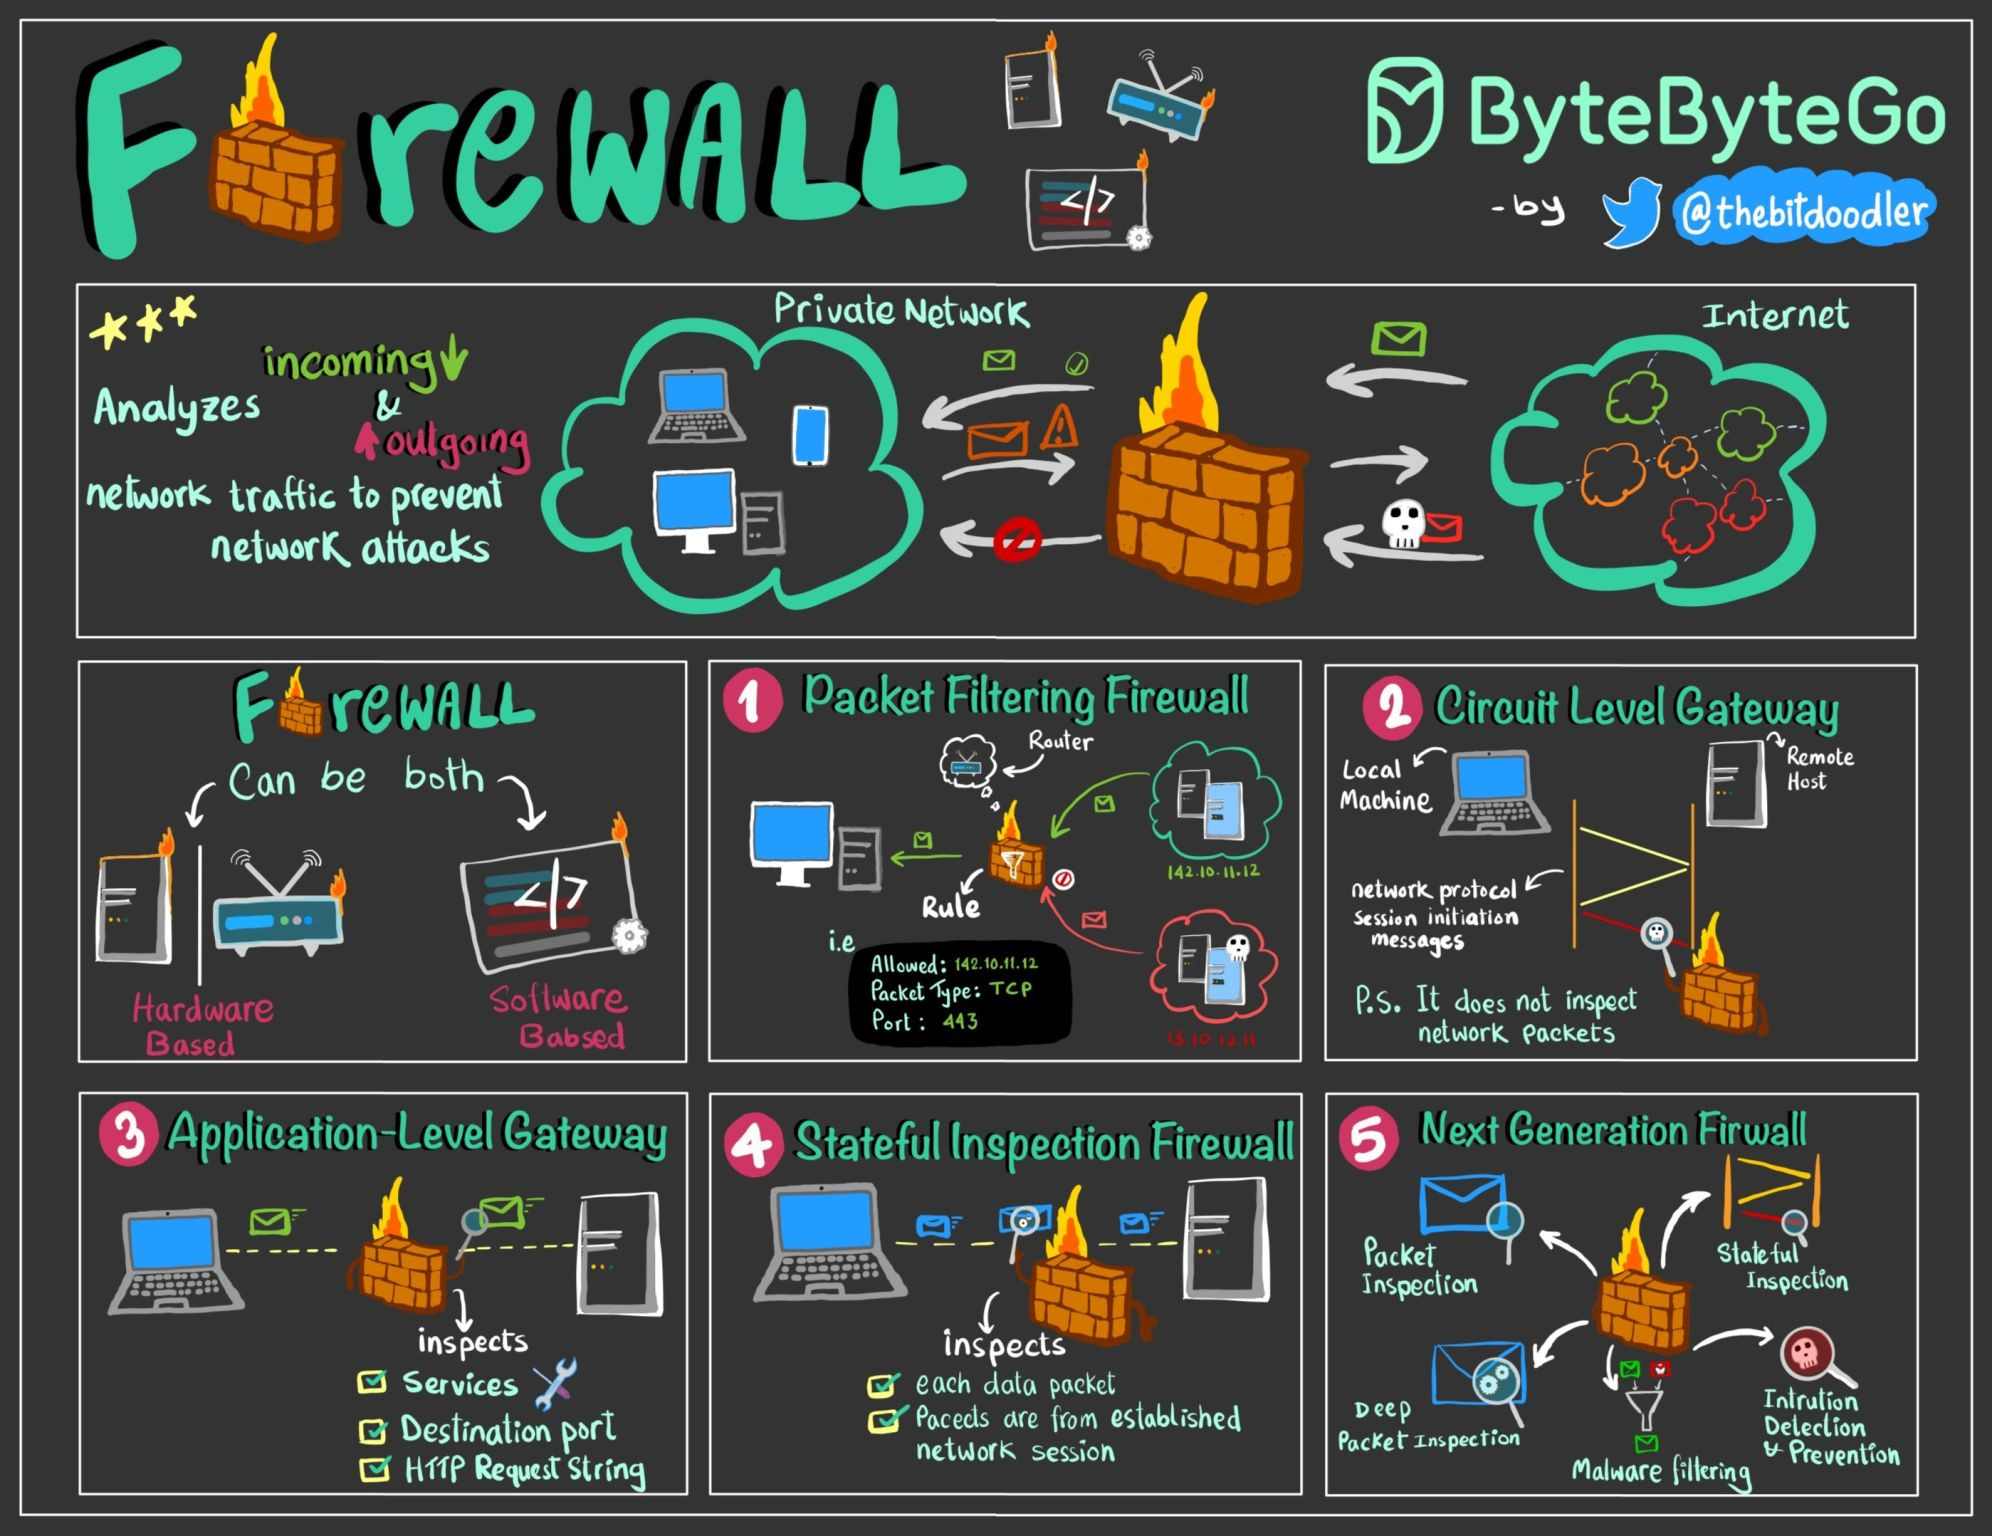 FirewALL
ByteByteGo
-by @thebitdoodler
Private Network
Internet
Analyzes incoming & outgoing
network traffic to prevent
network attacks
FirewALL
Can be both
Hardware
Based
Software
Babsed
1 Packet Filtering Firewall
Router
142.10.11.12
Rule
i.e
Allowed: 142.10.11.12
Packet Type: TCP
Port: 443
13.10 12 11
2 Circuit Level Gateway
Local
Machine
Remote
Host
network protocol
session initiation
messages
P.S. It does not inspect
network packets
3 Application-Level Gateway
inspects
Services
Destination port
HTTP Request String
4 Stateful Inspection Firewall
inspects
each data packet
Pacects are from established
network session
5 Next Generation Firwall
Packet
Inspection
Stateful
Inspection
Deep
Packet Inspection
Malware filtering
Intrution
Detection
& Prevention